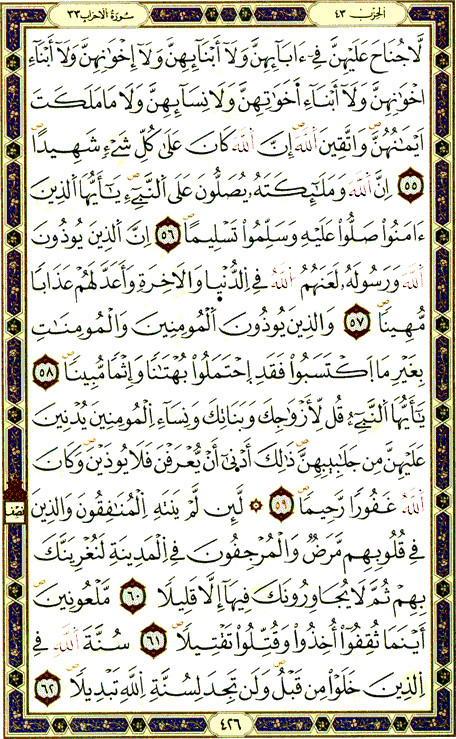 الحزب ٤٣
سورة الاحزاب ٣٣
لَّا جُنَاحَ عَلَيْهِنَّ فِےٓ ءَابَآئِهِنَّ وَلَآ أَبْنَآئِهِنَّ وَلَآ إِخْوَٰنِهِنَّ وَلَآ أَبْنَآءِ
اِ۪خْوَٰنِهِنَّ وَلَآ أَبْنَآءِ اَ۬خَوَٰتِهِنَّ وَلَا نِسَآئِهِنَّ وَلَا مَا مَلَكَتَ
اَيْمَٰنُهُنَّ وَاتَّقِينَ اَ۬للَّهَ إِنَّ اَ۬للَّهَ كَانَ عَلَىٰ كُلِّ شَےْءٖ شَهِيداً
٥٥ اِنَّ اَ۬للَّهَ وَمَلَٰٓئِكَتَهُۥ يُصَلُّونَ عَلَى اَ۬لنَّبِےٓءِ يَٰٓأَيُّهَا اَ۬لذِينَ
ءَامَنُواْ صَلُّواْ عَلَيْهِ وَسَلِّمُواْ تَسْلِيماًۖ ٥٦ اِنَّ اَ۬لذِينَ يُوذُونَ
اَ۬للَّهَ وَرَسُولَهُۥ لَعَنَهُمُ اُ۬للَّهُ فِے اِ۬لدُّنْي۪ا وَالَاخِرَةِ وَأَعَدَّ لَهُمْ عَذَاباٗ
مُّهِيناٗۖ ٥٧ وَالذِينَ يُوذُونَ اَ۬لْمُومِنِينَ وَالْمُومِنَٰتِ
بِغَيْرِ مَا اَ۪كْتَسَبُواْ فَقَدِ اِ۪حْتَمَلُواْ بُهْتَٰناٗ وَإِثْماٗ مُّبِيناٗۖ ٥٨
يَٰٓأَيُّهَا اَ۬لنَّبِےٓءُ قُل لِّأَزْوَٰجِكَ وَبَنَاتِكَ وَنِسَآءِ اِ۬لْمُومِنِينَ يُدْنِينَ
عَلَيْهِنَّ مِن جَلَٰبِيبِهِنَّۖ ذَٰلِكَ أَدْنَىٰٓ أَنْ يُّعْرَفْنَ فَلَا يُوذَيْنَۖ وَكَانَ
اَ۬للَّهُ غَفُوراٗ رَّحِيماٗۖ ٥٩ ۞ لَّئِن لَّمْ يَنتَهِ اِ۬لْمُنَٰفِقُونَ وَالذِينَ
نصف
فِے قُلُوبِهِم مَّرَضٞ وَالْمُرْجِفُونَ فِے اِ۬لْمَدِينَةِ لَنُغْرِيَنَّكَ
بِهِمْ ثُمَّ لَا يُجَاوِرُونَكَ فِيهَآ إِلَّا قَلِيلاٗۖ ٦٠ مَّلْعُونِينَۖ
أَيْنَمَا ثُقِفُوٓاْ أُخِذُواْ وَقُتِّلُواْ تَقْتِيلاٗۖ ٦١ سُنَّةَ اَ۬للَّهِ فِے
اِ۬لذِينَ خَلَوْاْ مِن قَبْلُۖ وَلَن تَجِدَ لِسُنَّةِ اِ۬للَّهِ تَبْدِيلاٗۖ ٦٢
٤٢٦